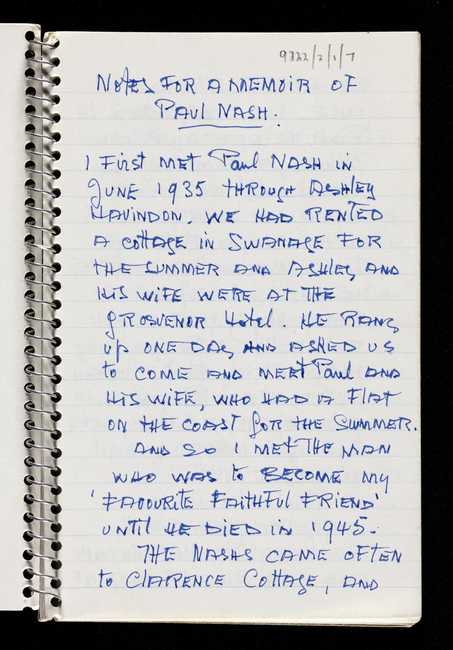 9322/2/1/7
NOTES FOR A MEMOIR OF
PAUL NASH.
I FIRST MET PAUL NASH IN
JUNE 1935 THROUGH ASHLEY
HAVINDON. WE HAD RENTED
A COTTAGE IN SWANAGE FOR
THE SUMMER AND ASHLEY AND
HIS WIFE WERE AT THE
GROSVENOR HOTEL. HE RANG
UP ONE DAY AND ASKED US
TO COME AND MEET PAUL AND
HIS WIFE, WHO HAD A FLAT
ON THE COAST FOR THE SUMMER.
AND SO I MET THE MAN
WHO WAS TO BECOME MY
'FAVOURITE FAITHFUL FRIEND'
UNTIL HE DIED IN 1945.
THE NASHS CAME OFTEN
TO CLARENCE COTTAGE, AND